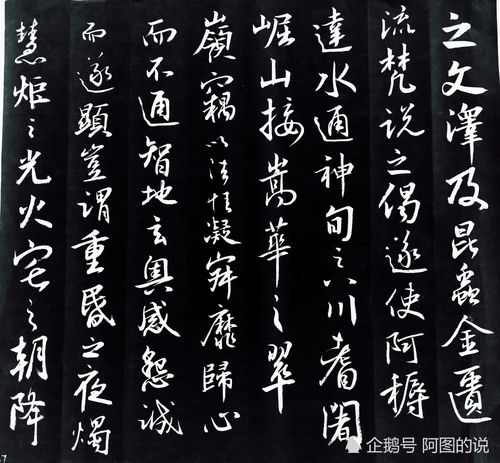 之文澤及昆蟲金匱
流梵說之偈遂使阿耨
達水通神甸之八川耆闍
崛山接嵩華之翠
嶺竊以法性凝寂靡歸心
而不通智地玄奧感懇誠
而遂顯豈謂重昏之夜燭
慧炬之光火宅之朝降
企鹅号 阿图的说